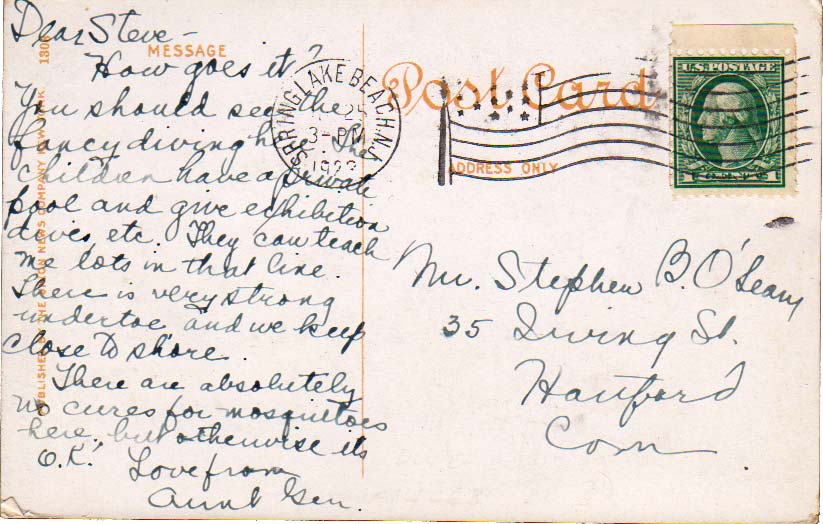 Dear Steve -
How goes it?
You should see the
fancy diving here. The
children have a private
pool and give exhibition
dives, etc. They can teach
me lots in that line.
There is very strong
undertoe and we keep
close to shore.
There are absolutely
no cures for mosquitoes
here, but otherwise its
O.K. Love from
Aunt Gen.
MESSAGE
Post Card
ADDRESS ONLY
SPRING LAKE BEACH N.J.
25
3-PM
U.S. POSTAGE
1 CENTS 1
Mr. Stephen B. O'Leary
35 Irving St.
Hartford
Conn
PUBLISHED BY THE UNION NEWS COMPANY NEW YORK.